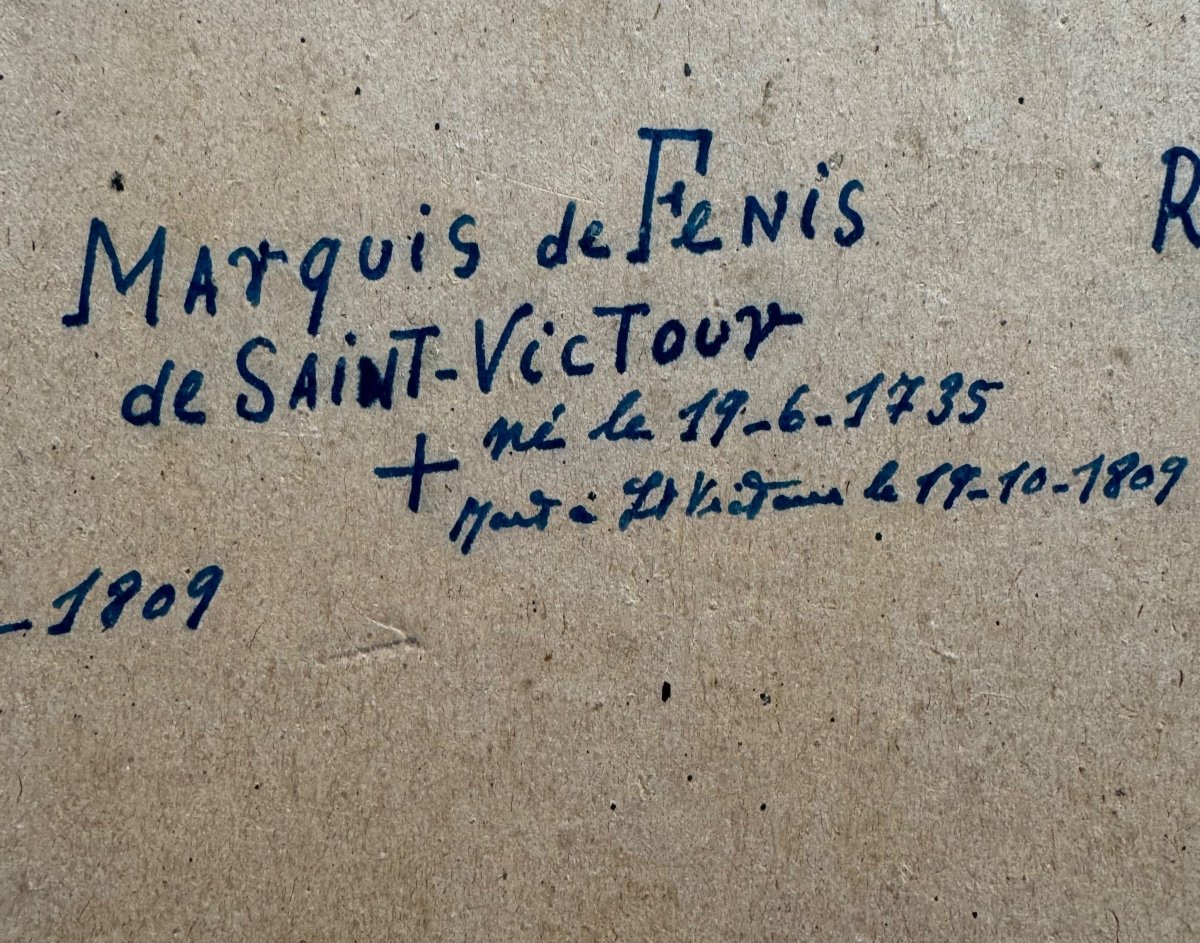 Marquis de Fenis
R
de SAINT-VicTour
né le 19-6-1735
+ Mort à St Victour le 19-10-1809
- 1809